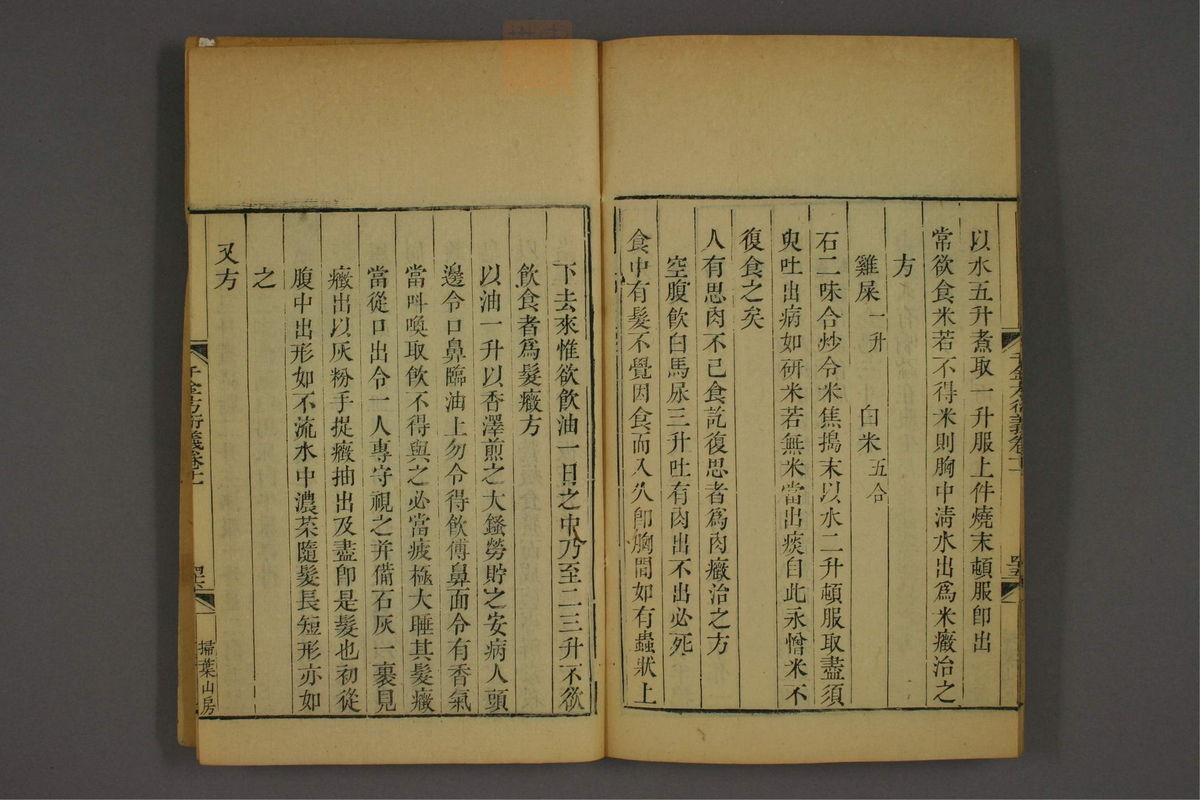 以水五升煮取一升服上件燒末頓服卽出
常欲食米若不得米則胸中淸水出爲米癥治之
方
雞屎一升 白米五合
石二味合炒令米焦搗末以水二升頓服取盡須
臾吐出病如硏米若無米當出痰自此永憎米不
復食之矣
人有思肉不已食訖復思者爲肉癥治之方
空腹飮白馬尿三升吐有肉出不出必死
食中有髮不覺因食而入久卽胸間如有蟲狀上
下去來惟欲飮油一日之中乃至二三升不欲
飮食者爲髮癥方
以油一升以香澤煎之大鏹勞貯之安病人頭
邊令口鼻臨油上勿令得飮傅鼻面令有香氣
當呌喚取飮不得與之必當疲極大睡其髮癥
當從口出令一人專守視之幷備石灰一裹見
癥出以灰粉手捉癥抽出及盡卽是髮也初從
腹中出形如不流水中濃菜隨髮長短形亦如
之
又方
千金方衍義卷十一
掃葉山房